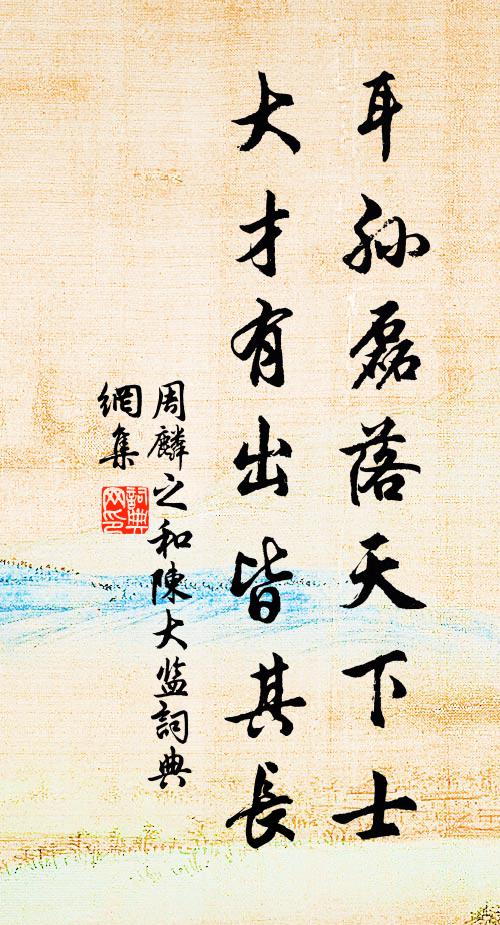 耳孙磊落天下士
大才有出皆其長
周麟之和陳大监詞典
網集
詞典
网印